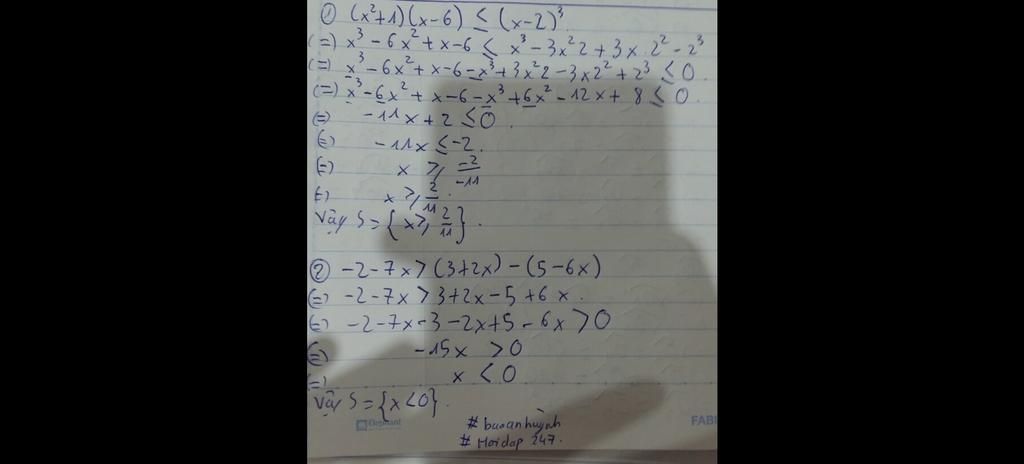 ① (x²+1)(x-6) ≤ (x-2)³
(=) x³ - 6x² + x - 6 ≤ x³ - 3x²2 + 3x 2² - 2³
(=) x³ - 6x² + x - 6 - x³ + 3x²2 - 3x2² + 2³ ≤ 0
(=) x³ - 6x² + x - 6 - x³ + 6x² - 12x + 8 ≤ 0
(=) -11x + 2 ≤ 0
(=) -11x ≤ -2
(=) x ≥ -2/-11
(=) x ≥ 2/11
Vậy S = {x ≥ 2/11}.
② -2-7x > (3+2x) - (5-6x)
(=) -2-7x > 3+2x-5+6x.
(=) -2-7x-3-2x+5-6x > 0
(=) -15x > 0
(=) x < 0
Vậy S = {x < 0}.
Elephant
FABE
# buoanhuỳnh
# Hoidap 247.